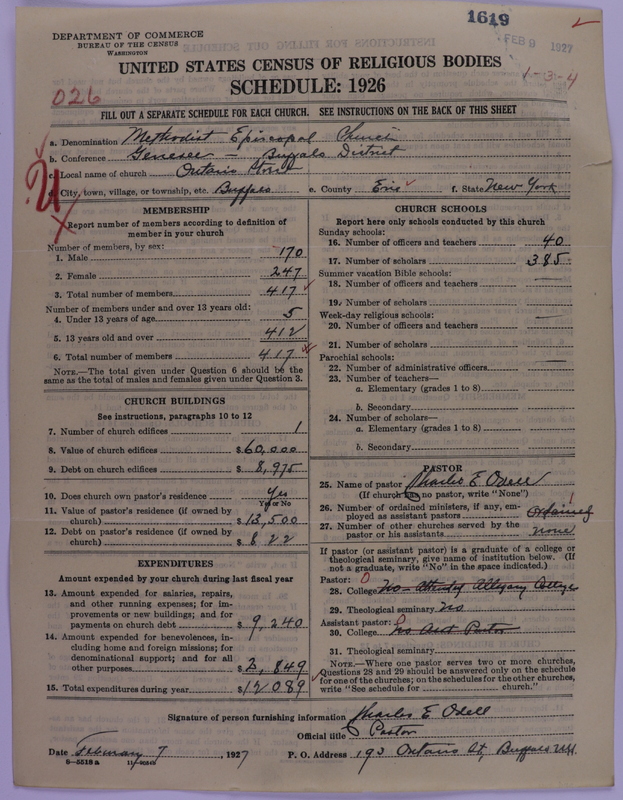 1619
FEB 9 1927
1-3-4
026
DEPARTMENT OF COMMERCE
BUREAU OF THE CENSUS
WASHINGTON
UNITED STATES CENSUS OF RELIGIOUS BODIES
SCHEDULE: 1926
FILL OUT A SEPARATE SCHEDULE FOR EACH CHURCH. SEE INSTRUCTIONS ON THE BACK OF THIS SHEET
a. Denomination Methodist Episcopal Church
b. Conference Genesee - Buffalo District
c. Local name of church Ontario Street
d. City, town, village, or township, etc. Buffalo e. County Erie f. State New York
MEMBERSHIP
Report number of members according to definition of
member in your church
Number of members, by sex:
1. Male 170
2. Female 247
3. Total number of members 417
Number of members under and over 13 years old:
4. Under 13 years of age 5
5. 13 years old and over 412
6. Total number of members 417
NOTE.—The total given under Question 6 should be
same as the total of males and females given under Question 3.
CHURCH BUILDINGS
See instructions, paragraphs 10 to 12
7. Number of church edifices 1
8. Value of church edifices $60,000
9. Debt on church edifices $8,975
10. Does church own pastor's residence Yes
Yes or No
11. Value of pastor's residence (if owned by
church) $13,500
12. Debt on pastor's residence (if owned by
church) $822
EXPENDITURES
Amount expended by your church during last fiscal year
13. Amount expended for salaries, repairs,
and other running expenses; for im-
provements or new buildings; and for
payments on church debt $9,240
14. Amount expended for benevolences, in-
cluding home and foreign missions; for
denominational support; and for all
other purposes $2,849
15. Total expenditures during year $12089
CHURCH SCHOOLS
Report here only schools conducted by this church
Sunday schools:
16. Number of officers and teachers 40
17. Number of scholars 385
Summer vacation Bible schools:
18. Number of officers and teachers
19. Number of scholars
Week-day religious schools:
20. Number of officers and teachers
21. Number of scholars
Parochial schools:
22. Number of administrative officers
23. Number of teachers—
a. Elementary (grades 1 to 8)
b. Secondary
24. Number of scholars—
a. Elementary (grades 1 to 8)
b. Secondary
PASTOR
25. Name of pastor Charles E. Odell
(If church has no pastor, write "None")
26. Number of ordained ministers, if any, em-
ployed as assistant pastors ordained
27. Number of other churches served by the
pastor or his assistants none
If pastor (or assistant pastor) is a graduate of a college or
theological seminary, give name of institution below. (If
not a graduate, write "No" in the space indicated.)
Pastor: 0
28. College No - attended Allegany College
29. Theological seminary no
Assistant pastor:
30. College No Asst Pastor
31. Theological seminary
NOTE.—Where one pastor serves two or more churches,
Questions 28 and 29 should be answered only on the schedule
for one of the churches; on the schedules for the other churches,
write "See schedule for church."
Signature of person furnishing information Charles E. Odell
Official title Pastor
Date February 7, 1927 P. O. Address 193 Ontario St, Buffalo N.Y.
8-5518a